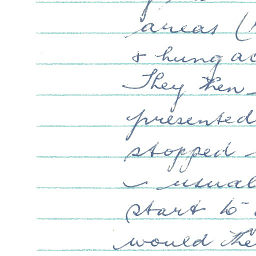 areas (
& hung ac
They then
presented
stopped -
usual
start to
would the